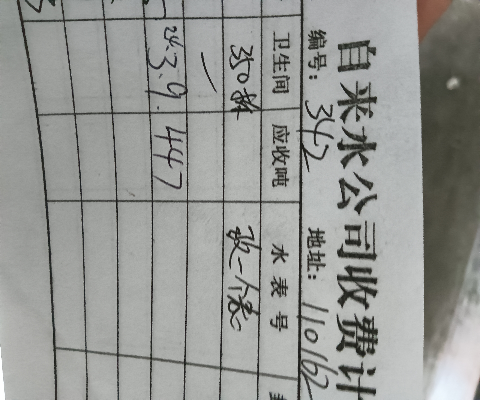 自来水公司收费计
编号: 342 地址: 110162
卫生间 应收吨 水表号
350 改一个表
24.3.9. 447